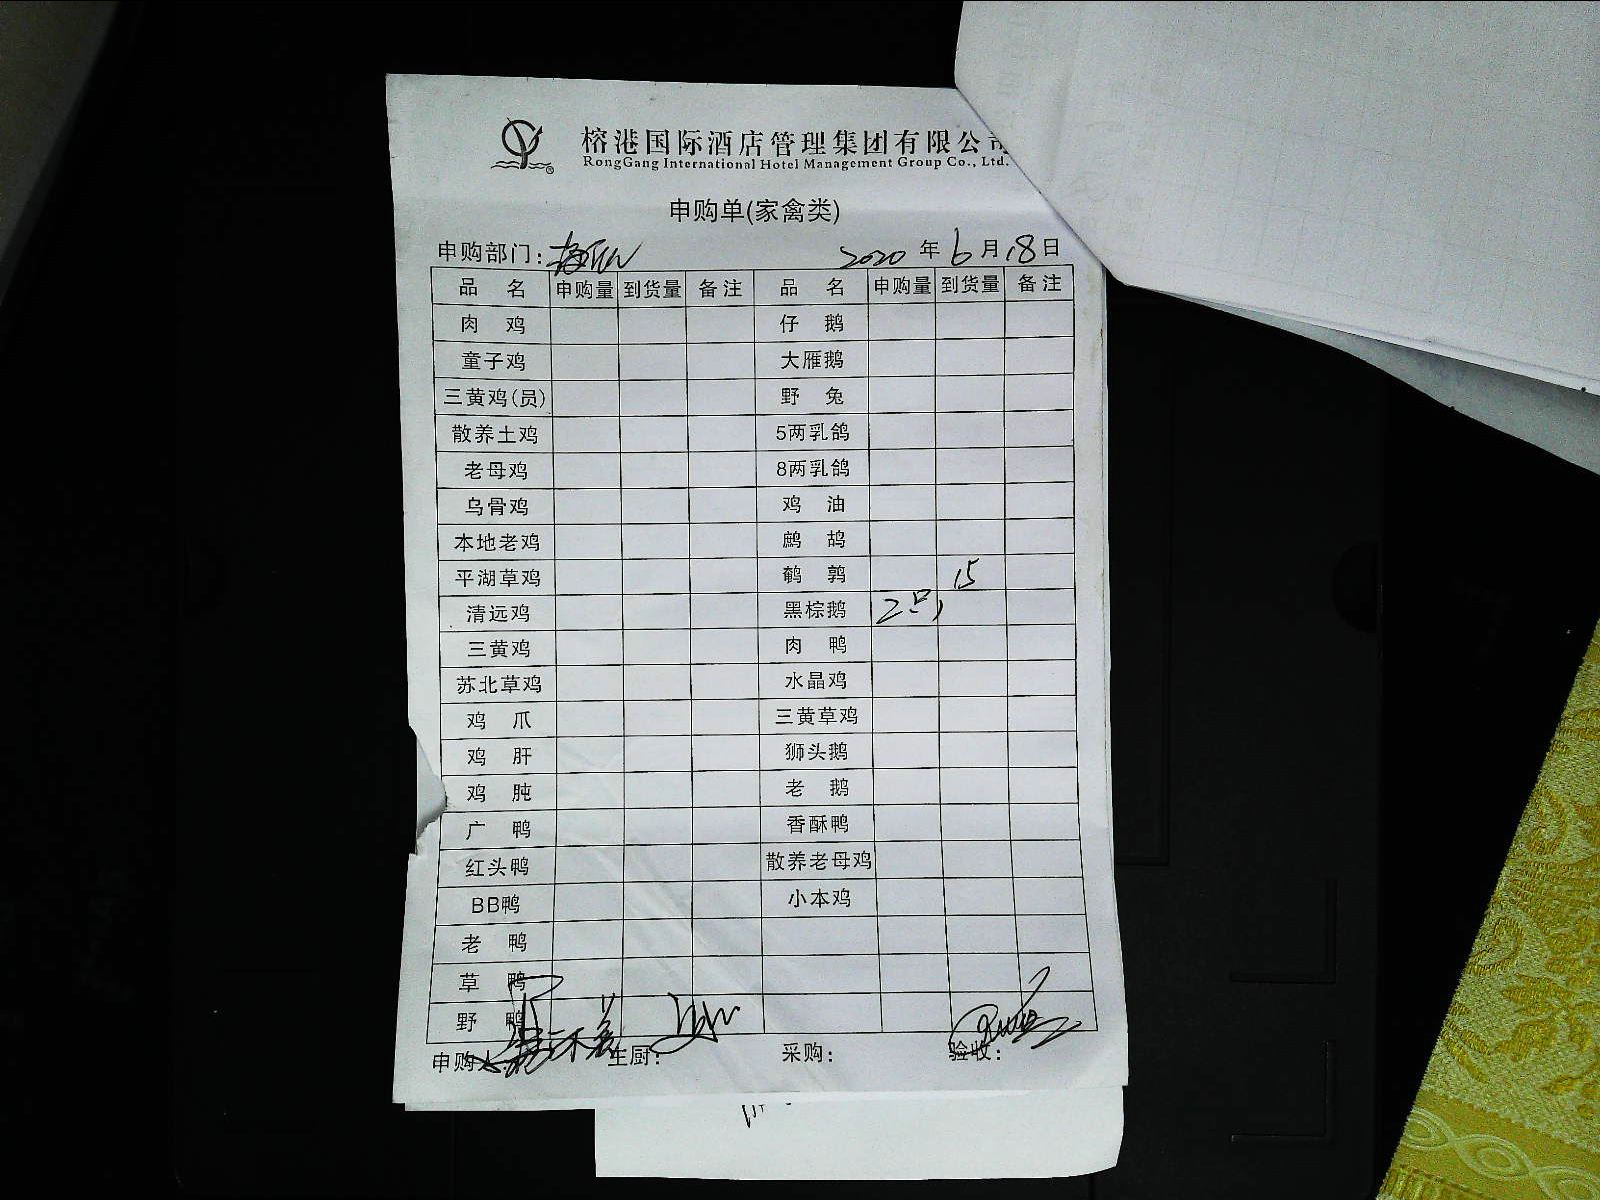 榕港国际酒店管理集团有限公司
RongGang International Hotel Management Group Co., Ltd.
申购单(家禽类)
申购部门: 2020 年 6 月 18 日
品 名 申购量 到货量 备注 品 名 申购量 到货量 备注
肉 鸡 仔 鹅
童子鸡 大雁鹅
三黄鸡(员) 野 兔
散养土鸡 5两乳鸽
老母鸡 8两乳鸽
乌骨鸡 鸡 油
本地老鸡 鹧 鸪
平湖草鸡 鹌 鹑 15
清远鸡 黑棕鹅 2只
三黄鸡 肉 鸭
苏北草鸡 水晶鸡
鸡 爪 三黄草鸡
鸡 肝 狮头鹅
鸡 肫 老 鹅
广 鸭 香酥鸭
红头鸭 散养老母鸡
BB鸭 小本鸡
老 鸭
草 鸭
野 鸭
申购人: 主厨: 采购: 验收: